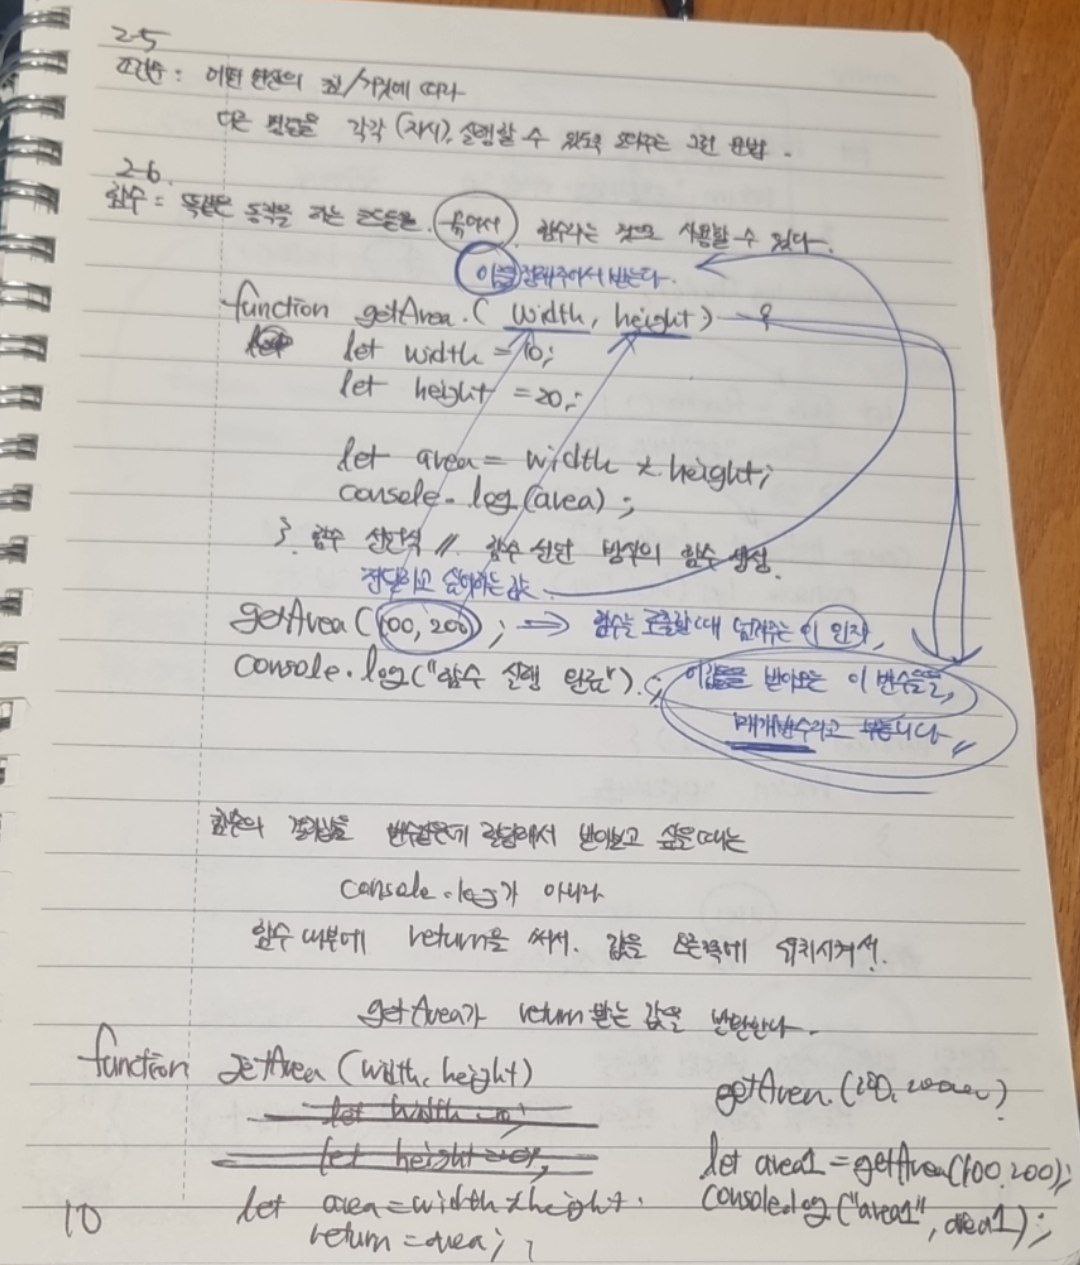 2-5
조건문 : 어떤 조건의 참/거짓에 따라
다른 명령을 각각 (지시), 실행할 수 있도록 도와주는 그런 문법.
2-6.
함수 = 똑같은 동작을 하는 코드들을 묶어서 함수라는 것으로 사용할 수 있다.
이름 정해주어서 받는다.
function getArea.( width, height) {
let width = 10;
let height = 20;
let area = width * height;
console.log(area);
}. 함수 선언식 // 함수 선언 방식의 함수 생성.
전달하고 싶어하는 값
getArea(100, 200); → 함수는 호출할 때 넘겨주는 이 인자,
console.log("함수 실행 완료");
이 값들을 받아오는 이 변수들을,
매개변수라고 부릅니다 //
함수의 결과값을 변수같은데 할당해서 받아보고 싶을 때는
console.log가 아니라
함수 내부에 return을 써서. 값을 오른쪽에 위치시켜서.
getArea가 return 받는 값을 반환한다.
function getArea (width, height)
let width = 10;
let height = 20;
let area = width * height.
return = area; }
getArea.(100, 200)
let area1 = getArea(100.200);
console.log("area1", area1);
10